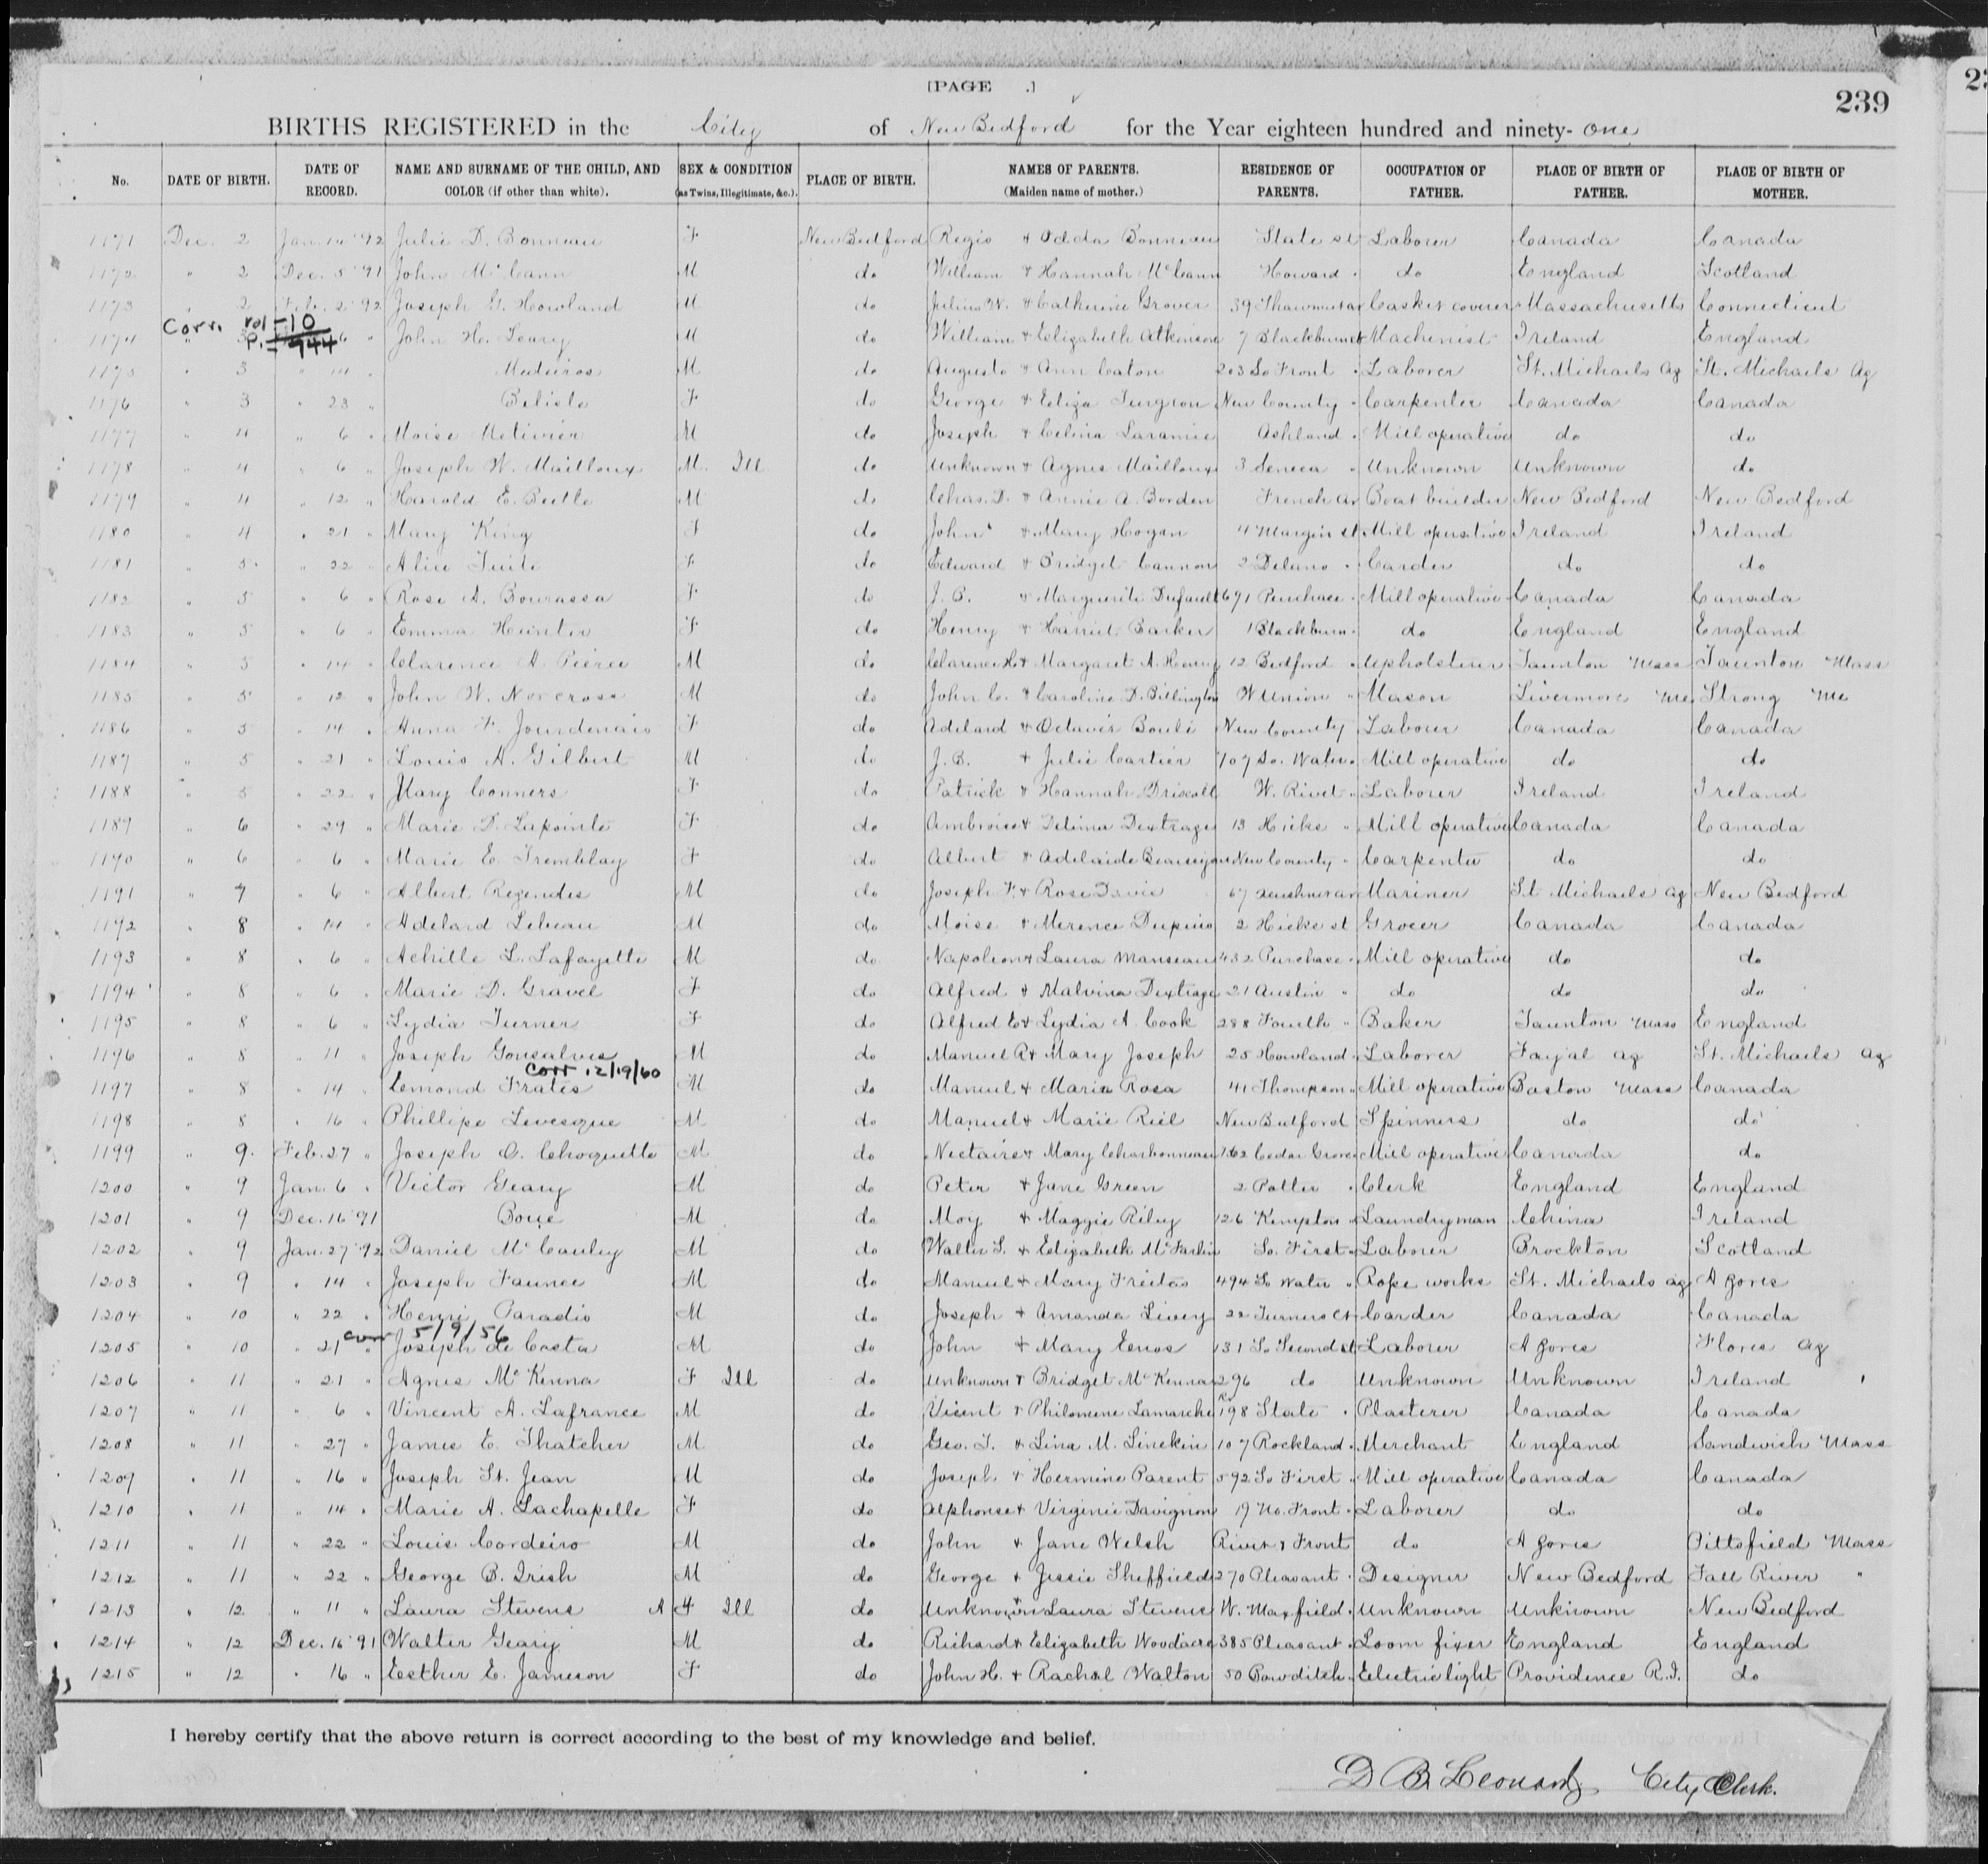 [PAGE .]
239
BIRTHS REGISTERED in the City of New Bedford for the Year eighteen hundred and ninety- one
No. DATE OF BIRTH. DATE OF RECORD. NAME AND SURNAME OF THE CHILD, AND COLOR (if other than white). SEX & CONDITION (as Twins, Illegitimate, &c.). PLACE OF BIRTH. NAMES OF PARENTS. (Maiden name of mother.) RESIDENCE OF PARENTS. OCCUPATION OF FATHER. PLACE OF BIRTH OF FATHER. PLACE OF BIRTH OF MOTHER.
1171 Dec. 2 Jan. 14 '92 Julie D. Bonneau F New Bedford Regis & Odda Bonneau State st Laborer Canada Canada
1172 " 2 Dec. 5 '91 John McCann M do William & Hannah McCann Howard " do England Scotland
1173 " 2 Feb. 2 '92 Joseph G. Howland M do Julius W. & Catherine Grover 39 Casket coverer Massachusetts Connecticut
Corr. vol - 10 p. - 944
1174 " 3 6 " John H. Leary M do William & Elizabeth Atkinson 7 Blackburn ct Machinist Ireland England
1175 " 3 " 14 " Medeiros M do Augusto & Ann Caton 203 So Front " Laborer St. Michaels Az St. Michaels Az
1176 " 3 " 23 " Belisle F do George & Eliza Turgeon New County " Carpenter Canada Canada
1177 " 4 " 6 " Moise Metivier M do Joseph & Celina Laramie Ashland " Mill operative do do
1178 " 4 " 6 " Joseph W. Mailloux M. Ill do Unknown & Agnes Mailloux 3 Seneca " Unknown Unknown do
1179 " 4 " 12 " Harold E. Beetle M do Chas. D. & Annie A. Borden French av Boat builder New Bedford New Bedford
1180 " 4 " 21 " Mary King F do John & Mary Hogan 4 Margin st Mill operative Ireland Ireland
1181 " 5 " 22 " Alice Tuite F do Edward & Bridget Cannon 2 Delano " Carder do do
1182 " 5 " 6 " Rose A. Bourassa F do J. B. & Marguerite Dufault 691 Purchase " Mill operative Canada Canada
1183 " 5 " 6 " Emma Hunter F do Henry & Harriet Barker 1 Blackburn " do England England
1184 " 5 " 14 " Clarence A. Pierce M do Clarence H. & Margaret A. Henry 12 Bedford " Upholsterer Taunton Mass Taunton Mass
1185 " 5 " 12 " John W. Norcross M do John C. & Caroline D. Billington W Union " Mason Livermore Me. Strong Me
1186 " 5 " 14 " Anna F. Jourdenais F do Adelard & Octavie Boulé New County Laborer Canada Canada
1187 " 5 " 21 " Louis A. Gilbert M do J. B. & Julie Cartier 707 So. Water " Mill operative do do
1188 " 5 " 22 " Mary Conners F do Patrick & Hannah Driscoll W. Rivet " Laborer Ireland Ireland
1189 " 6 " 29 " Marie D. Lapointe F do Ambroise & Delima Dextrage 13 Hicks " Mill operative Canada Canada
1190 " 6 " 6 " Marie E. Tremblay F do Albert & Adelaide New County " Carpenter do do
1191 " 7 " 6 " Albert Rezendes M do Joseph F. & Rose Davis 67 Acushnet av Mariner St Michaels Az New Bedford
1192 " 8 " 14 " Adelard Lebeau M do Moise & Merence Dupuis 2 Hicks st Grocer Canada Canada
1193 " 8 " 6 " Achille L. Lafayette M do Napoleon & Laura Manseau 432 Purchase " Mill operative do do
1194 " 8 " 6 " Marie D. Gravel F do Alfred & Malvina Dextrage 21 Austin " do do do
1195 " 8 " 6 " Lydia Turner F do Alfred E & Lydia A. Cook 288 Fourth " Baker Taunton Mass England
1196 " 8 " 11 " Joseph Gonsalves M do Manuel R & Mary Joseph 25 Howland " Laborer Fayal Az St. Michaels Az
corr 12/19/60
1197 " 8 " 14 " Edmond Frates M do Manuel & Maria Rosa 41 Thompson " Mill operative Boston Mass Canada
1198 " 8 " 16 " Phillipe Levesque M do Manuel & Marie Riel New Bedford Spinners do do
1199 " 9 Feb. 27 " Joseph O. Choquette M do Nectaire & Mary Charbonneau 162 Cedar Grove Mill operative Canada do
1200 " 9 Jan. 6 " Victor Geary M do Peter & Jane Green 2 Potter " Clerk England England
1201 " 9 Dec. 16 '91 Boue M do Moy & Maggie Riley 126 Kempton " Laundryman China Ireland
1202 " 9 Jan. 27 '92 Daniel McCauley M do Walter S. & Elizabeth McFarlin So. First " Laborer Brockton Scotland
1203 " 9 " 14 " Joseph Faunce M do Manuel & Mary Freitas 494 So Water " Rope works St. Michaels Az Azores
1204 " 10 " 22 " Henri Paradis M do Joseph & Amanda Livey 22 Turners Ct Carder Canada Canada
corr 5/9/56
1205 " 10 " 21 " Joseph de Costa M do John & Mary Enos 131 So Second st Laborer Azores Flores Az
1206 " 11 " 21 " Agnes McKenna F Ill do Unknown & Bridget McKenna 296 do Unknown Unknown Ireland
1207 " 11 " 6 " Vincent A. Lafrance M do Vicent & Philomene Lamarche Rr 198 State " Plasterer Canada Canada
1208 " 11 " 27 " James E. Thatcher M do Geo. T. & Lina M. Linekin 107 Rockland " Merchant England Sandwich Mass
1209 " 11 " 16 " Joseph St. Jean M do Joseph & Hermine Parent 592 So First " Mill operative Canada Canada
1210 " 11 " 14 " Marie A. Lachapelle F do Alphonse & Virginie Davignon 19 No. Front " Laborer do do
1211 " 11 " 22 " Louis Cordeiro M do John & Jane Welsh Rivet & Front do Azores Pittsfield Mass
1212 " 11 " 22 " George B. Irish M do George & Jessie Sheffield 270 Pleasant " Designer New Bedford Fall River "
1213 " 12 " 11 " Laura Stevens A F Ill do Unknown & Laura Stevens W. Maxfield " Unknown Unknown New Bedford
1214 " 12 Dec. 16 '91 Walter Geary M do Richard & Elizabeth Woodacre 385 Pleasant " Loom fixer England England
1215 " 12 " 16 " Esther E. Jameson F do John H. & Rachel Walton 50 Bowditch " Electric light Providence R.I. do
I hereby certify that the above return is correct according to the best of my knowledge and belief.
D B Leonard, City Clerk.